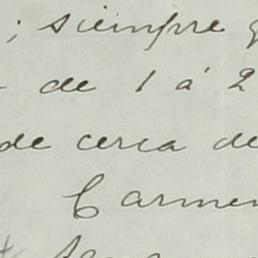 ; siempre
de 1 á 2
de cerca de
Carmen